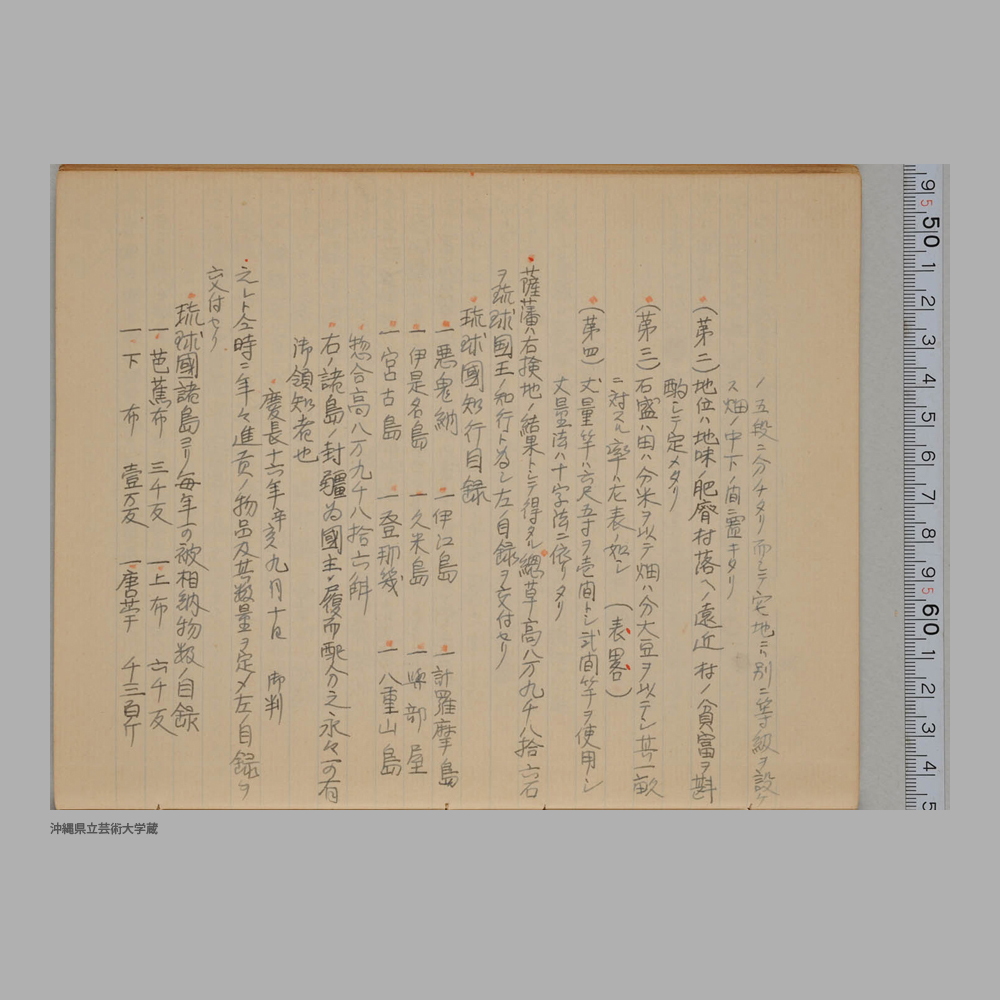 ノ五段ニ分チタリ而シテ宅地ニハ別ニ等級ヲ設ケ
ス畑ノ中下ノ間ニ置キタリ
(第二)地位ハ地味ノ肥瘠村落ヘノ遠近村ノ貧富ヲ斟
酌シテ定メタリ
(第三)石盛ハ田ハ分米ヲ以テ畑ハ分大豆ヲ以テシ其一畝
ニ対スル率ハ左表ノ如シ (表畧)
(第四)丈量竿ハ六尺五寸ヲ壱間トシ弐間竿ヲ使用シ
丈量法ハ十字法ニ依リタリ
薩藩ハ右検地ノ結果トシテ得タル總草高八万九千八拾六石
ヲ琉球国王ノ知行ト為シ左ノ目録ヲ交付セリ
琉球國知行目録
一 悪鬼納 一 伊江島 一 計羅摩島
一 伊是名島 一 久米島 一 與部屋
一 宮古島 一 登那幾 一 八重山島
惣合高八万九千八拾六斛
右ノ諸島ノ封疆為國主履而配分之永々可有
御領知者也
慶長十六年辛亥九月十日 御判
之レト仝時ニ年々進貢ノ物品及其数量ヲ定メ左ノ目録ヲ
交付セリ
琉球國諸島ヨリ毎年可被相納物数ノ目録
一 芭蕉布 三千反 一 上布 六千反
一 下布 壹万反 一 唐苧 千三百斤
9 50 1 2 3 4 5 6 7 8 9 60 1 2 3 4 5
沖縄県立芸術大学蔵